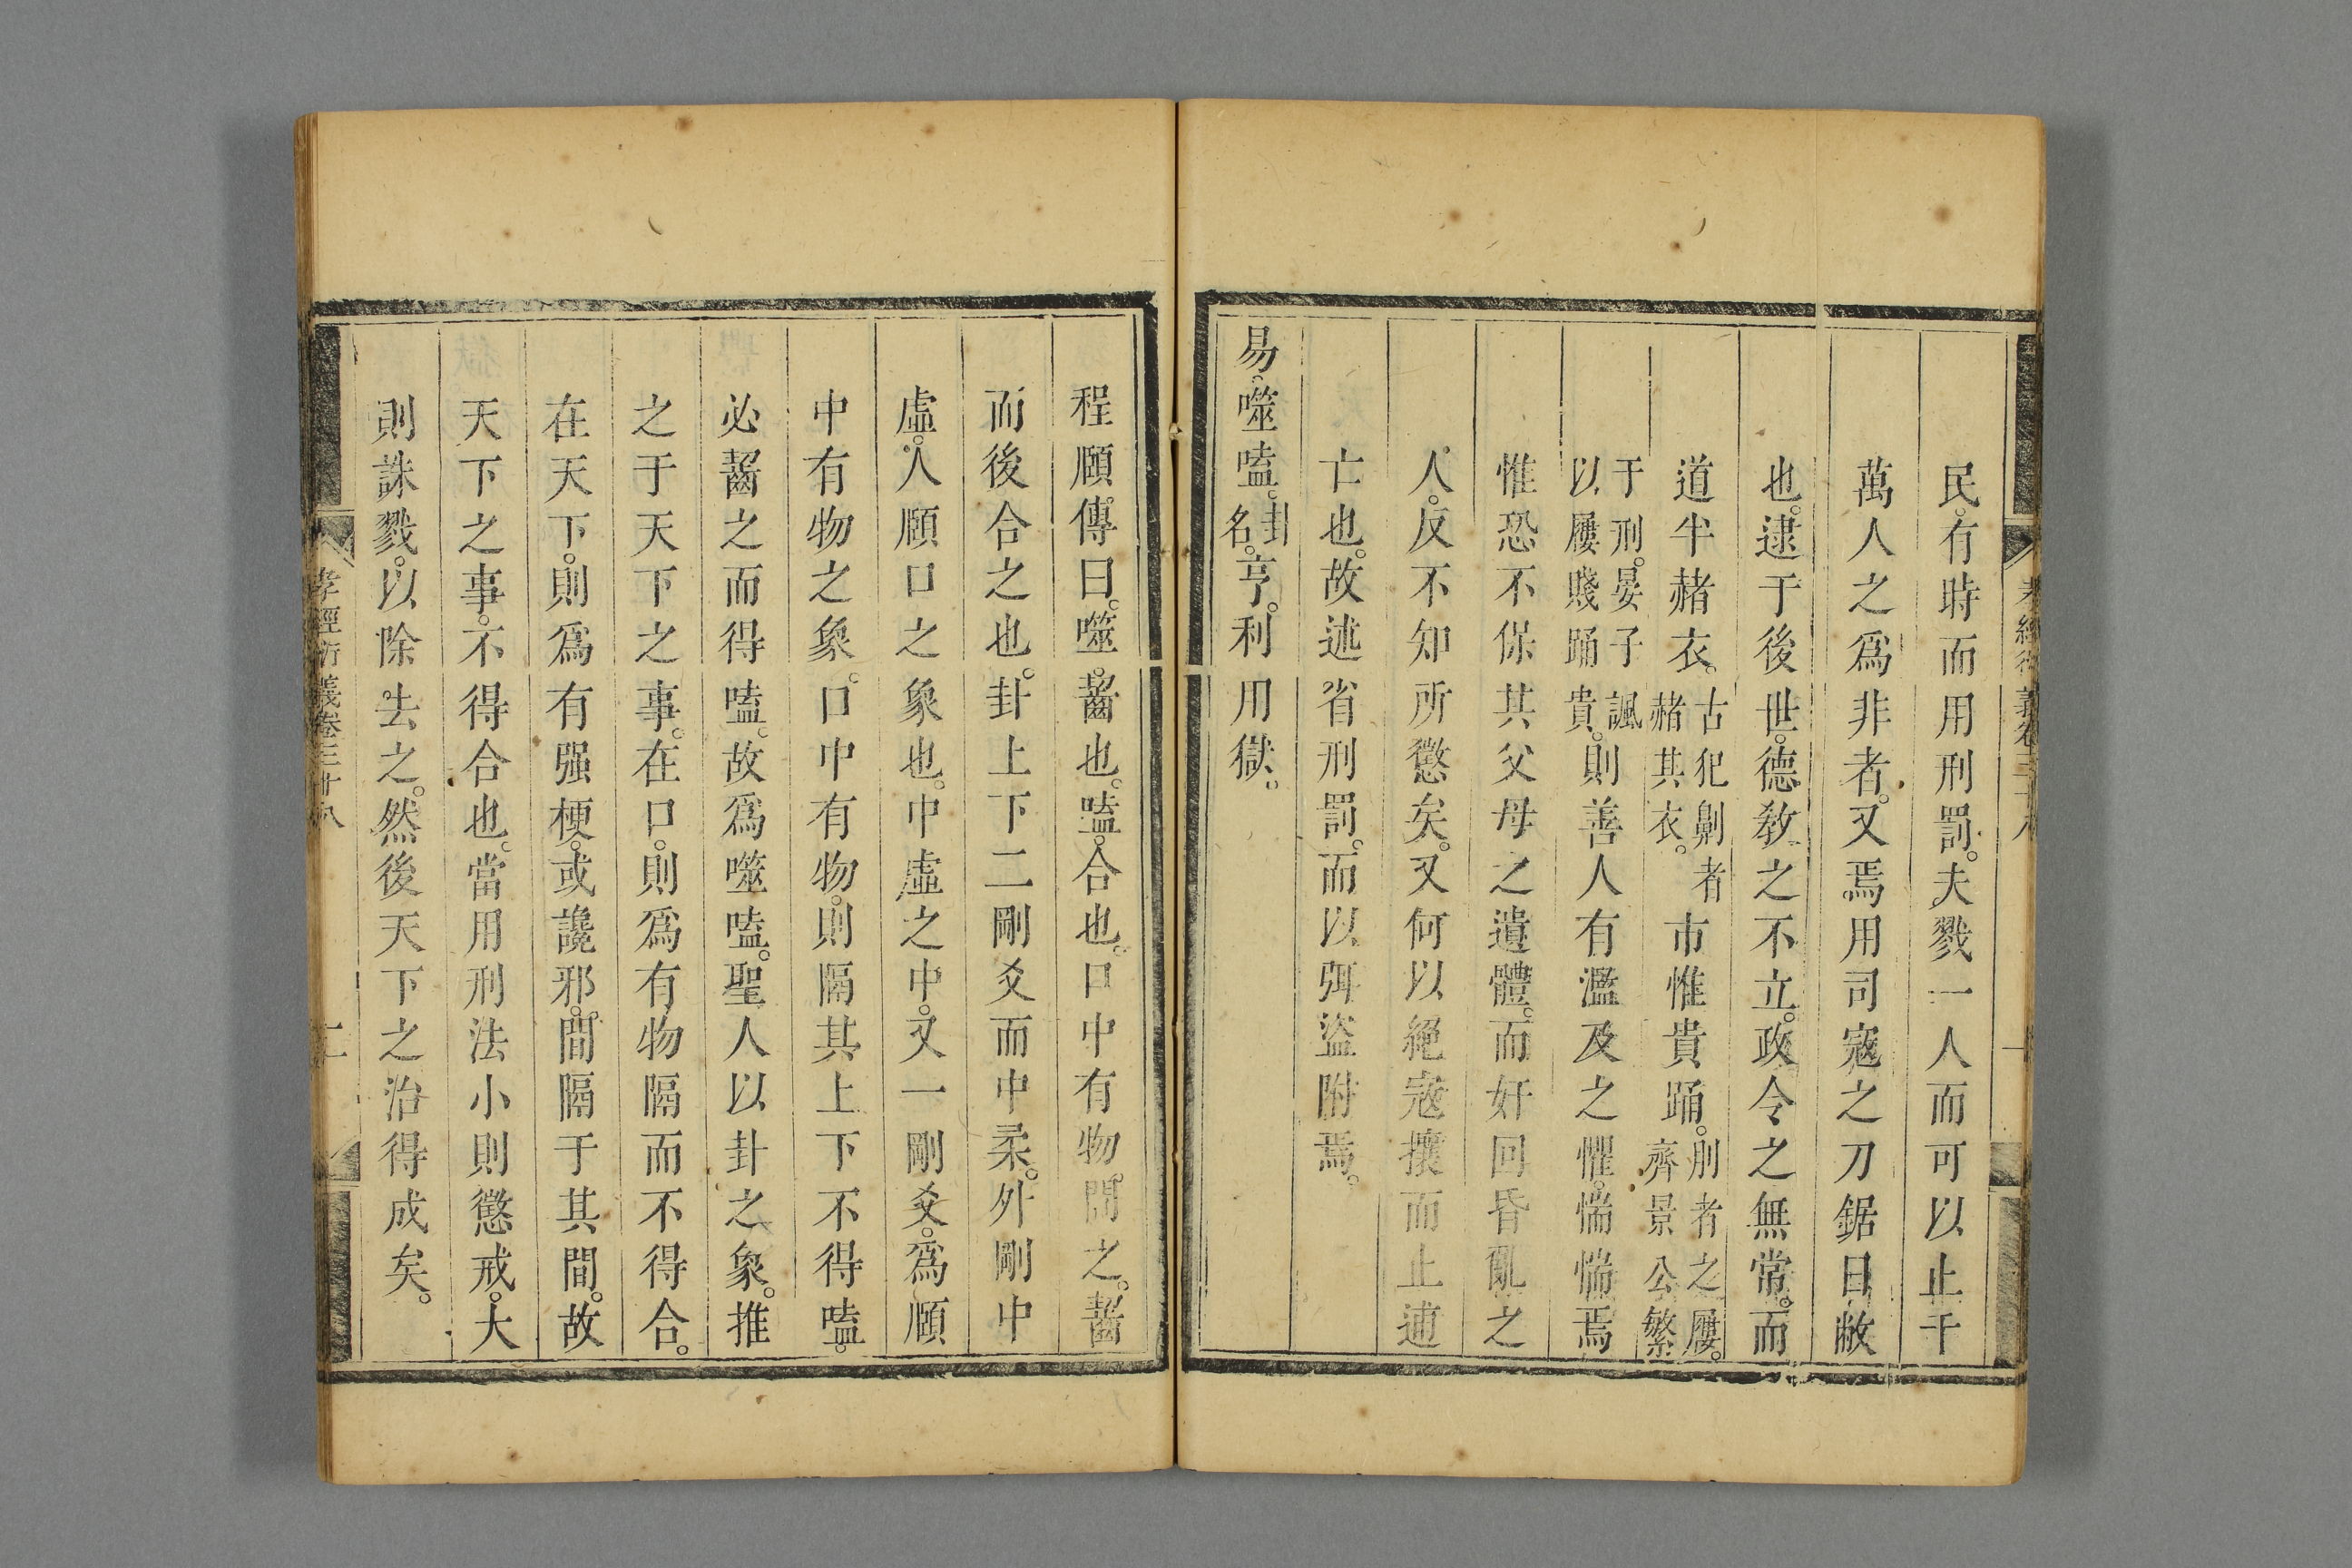 民有時而用刑罰。夫戮一人而可以止千
萬人之爲非者。又焉用司寇之刀鋸日敝
也。逮于後世。德教之不立。政令之無常。而
道半赭衣。古犯劓者赭其衣。市惟貴踊。刖者之屨。齊景公繁
于刑。晏子諷以屨賤踊貴。則善人有濫及之懼。惴惴焉
惟恐不保其父母之遺體。而奸回昏亂之
人。反不知所懲矣。又何以絕寇攘而止逋
亡也。故述省刑罰。而以弭盜附焉。
易。噬嗑。卦名。亨。利用獄。
程頤傳曰。噬。齧也。嗑。合也。口中有物間之。齧
而後合之也。卦上下二剛爻而中柔。外剛中
虛。人頤口之象也。中虛之中。又一剛爻。爲頤
中有物之象。口中有物。則隔其上下不得嗑。
必齧之而得嗑。故爲噬嗑。聖人以卦之象。推
之于天下之事。在口。則爲有物隔而不得合。
在天下。則爲有强梗。或讒邪。間隔于其間。故
天下之事。不得合也。當用刑法小則懲戒。大
則誅戮。以除去之。然後天下之治得成矣。
孝經衍義卷三十八